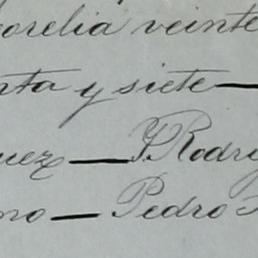 orelia veinte
nta y siete—
uez — Y. Rodri
no — Pedro